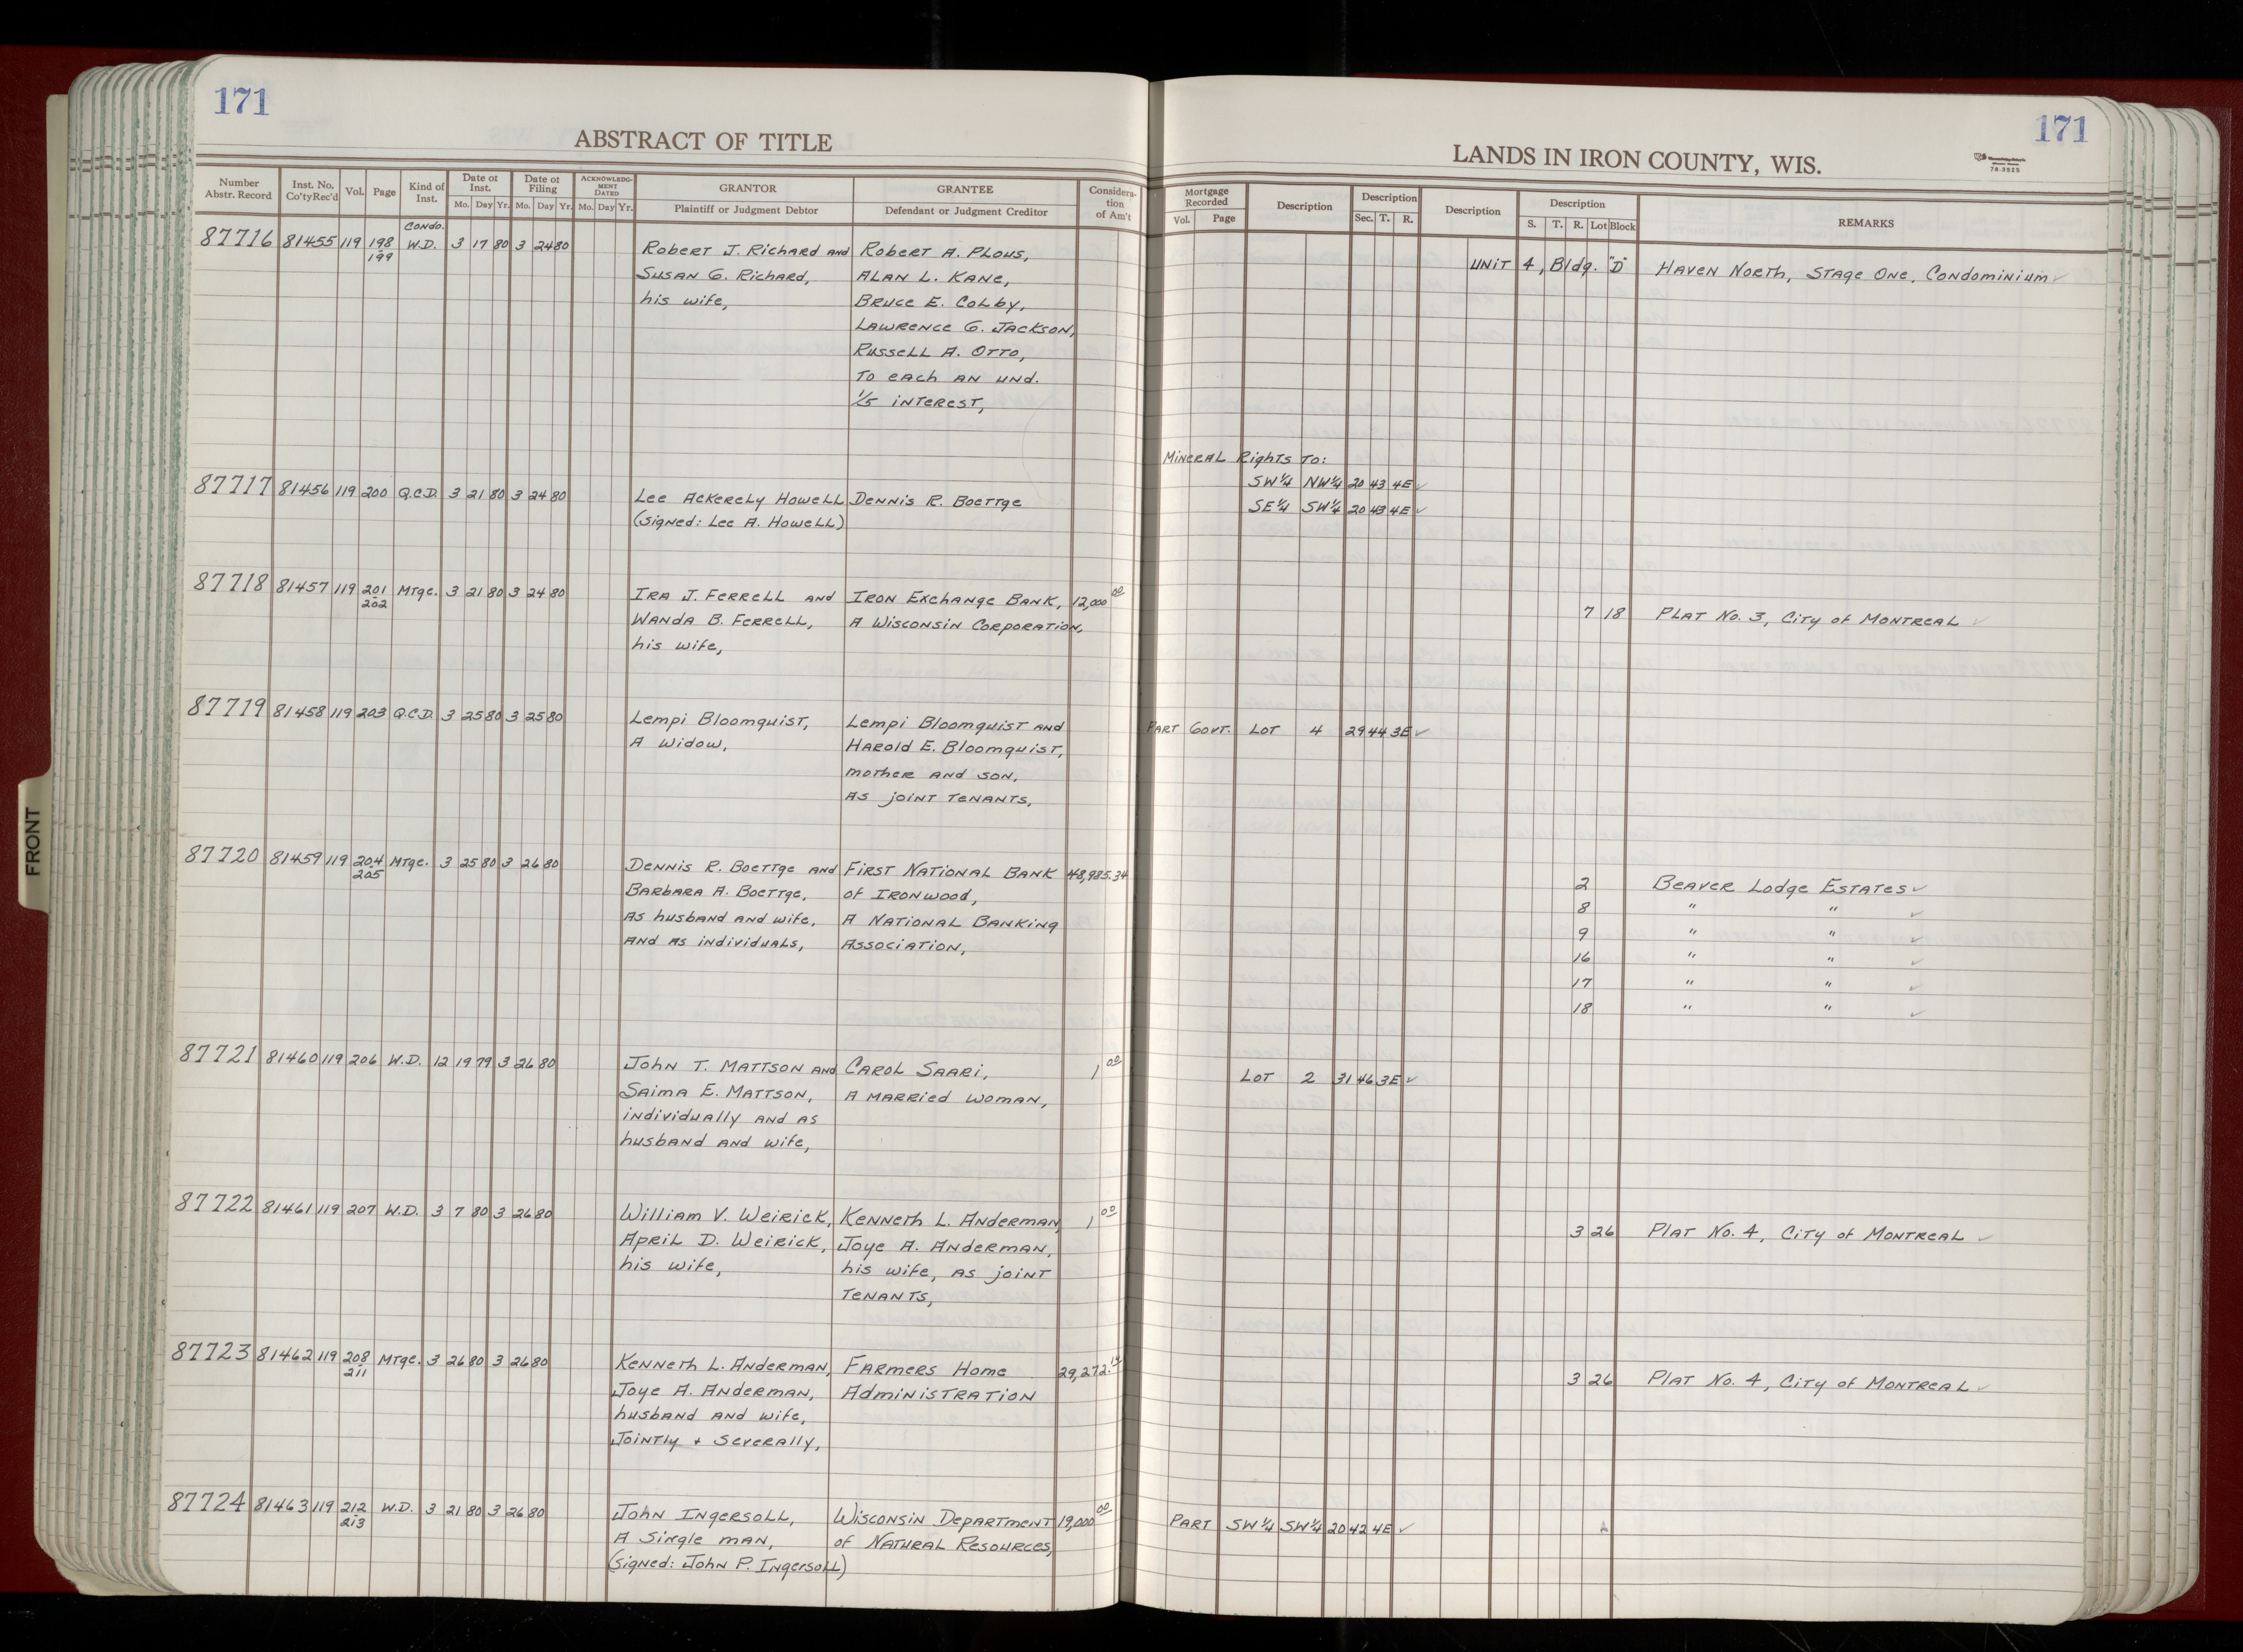 171
ABSTRACT OF TITLE
Number Abstr. Record | Inst. No. Co'tyRec'd | Vol. | Page | Kind of Inst. | Date of Inst. Mo. Day Yr. | Date of Filing Mo. Day Yr. | ACKNOWLEDGMENT DATED Mo. Day Yr. | GRANTOR Plaintiff or Judgment Debtor | GRANTEE Defendant or Judgment Creditor | Consideration of Am't
Condo.
87716 81455 119 198 W.D. 3 17 80 3 24 80 Robert J. Richard and Robert A. Plous,
199 Susan G. Richard, Alan L. Kane,
his wife, Bruce E. Colby,
Lawrence G. Jackson,
Russell A. Otto,
To each an und.
1/5 interest,
87717 81456 119 200 Q.C.D. 3 21 80 3 24 80 Lee Ackerely Howell Dennis R. Boettge
(signed: Lee A. Howell)
87718 81457 119 201 Mtge. 3 21 80 3 24 80 Ira J. Ferrell and Iron Exchange Bank, 12,000 00
202 Wanda B. Ferrell, A Wisconsin Corporation,
his wife,
87719 81458 119 203 Q.C.D. 3 25 80 3 25 80 Lempi Bloomquist, Lempi Bloomquist and
A Widow, Harold E. Bloomquist,
mother and son,
As joint tenants,
87720 81459 119 204 Mtge. 3 25 80 3 26 80 Dennis R. Boettge and First National Bank 48,985.34
205 Barbara A. Boettge, of Ironwood,
As husband and wife, A National Banking
and as individuals, Association,
87721 81460 119 206 W.D. 12 19 79 3 26 80 John T. Mattson and Carol Saari, 1 00
Saima E. Mattson, A married woman,
individually and as
husband and wife,
87722 81461 119 207 W.D. 3 7 80 3 26 80 William V. Weirick, Kenneth L. Anderman, 1 00
April D. Weirick, Joye A. Anderman,
his wife, his wife, as joint
tenants,
87723 81462 119 208 Mtge. 3 26 80 3 26 80 Kenneth L. Anderman, Farmers Home 29,272.14
211 Joye A. Anderman, Administration
husband and wife,
Jointly + Severally,
87724 81463 119 212 W.D. 3 21 80 3 26 80 John Ingersoll, Wisconsin Department 19,000 00
213 A Single man, of Natural Resources,
(signed: John P. Ingersoll)
FRONT
171
LANDS IN IRON COUNTY, WIS.
78-3525
Mortgage Recorded Vol. Page | Description | Description Sec. T. R. | Description | Description S. T. R. Lot Block | REMARKS
Unit 4, Bldg. "D" Haven North, Stage One, Condominium ✓
Mineral Rights To:
SW¼ NW¼ 20 43 4E ✓
SE¼ SW¼ 20 43 4E ✓
7 18 Plat No. 3, City of Montreal ✓
Part Govt. Lot 4 29 44 3E ✓
2 Beaver Lodge Estates ✓
8 " " ✓
9 " " ✓
16 " " ✓
17 " " ✓
18 " " ✓
Lot 2 31 46 3E ✓
3 26 Plat No. 4, City of Montreal ✓
3 26 Plat No. 4, City of Montreal ✓
Part SW¼ SW¼ 20 42 4E ✓